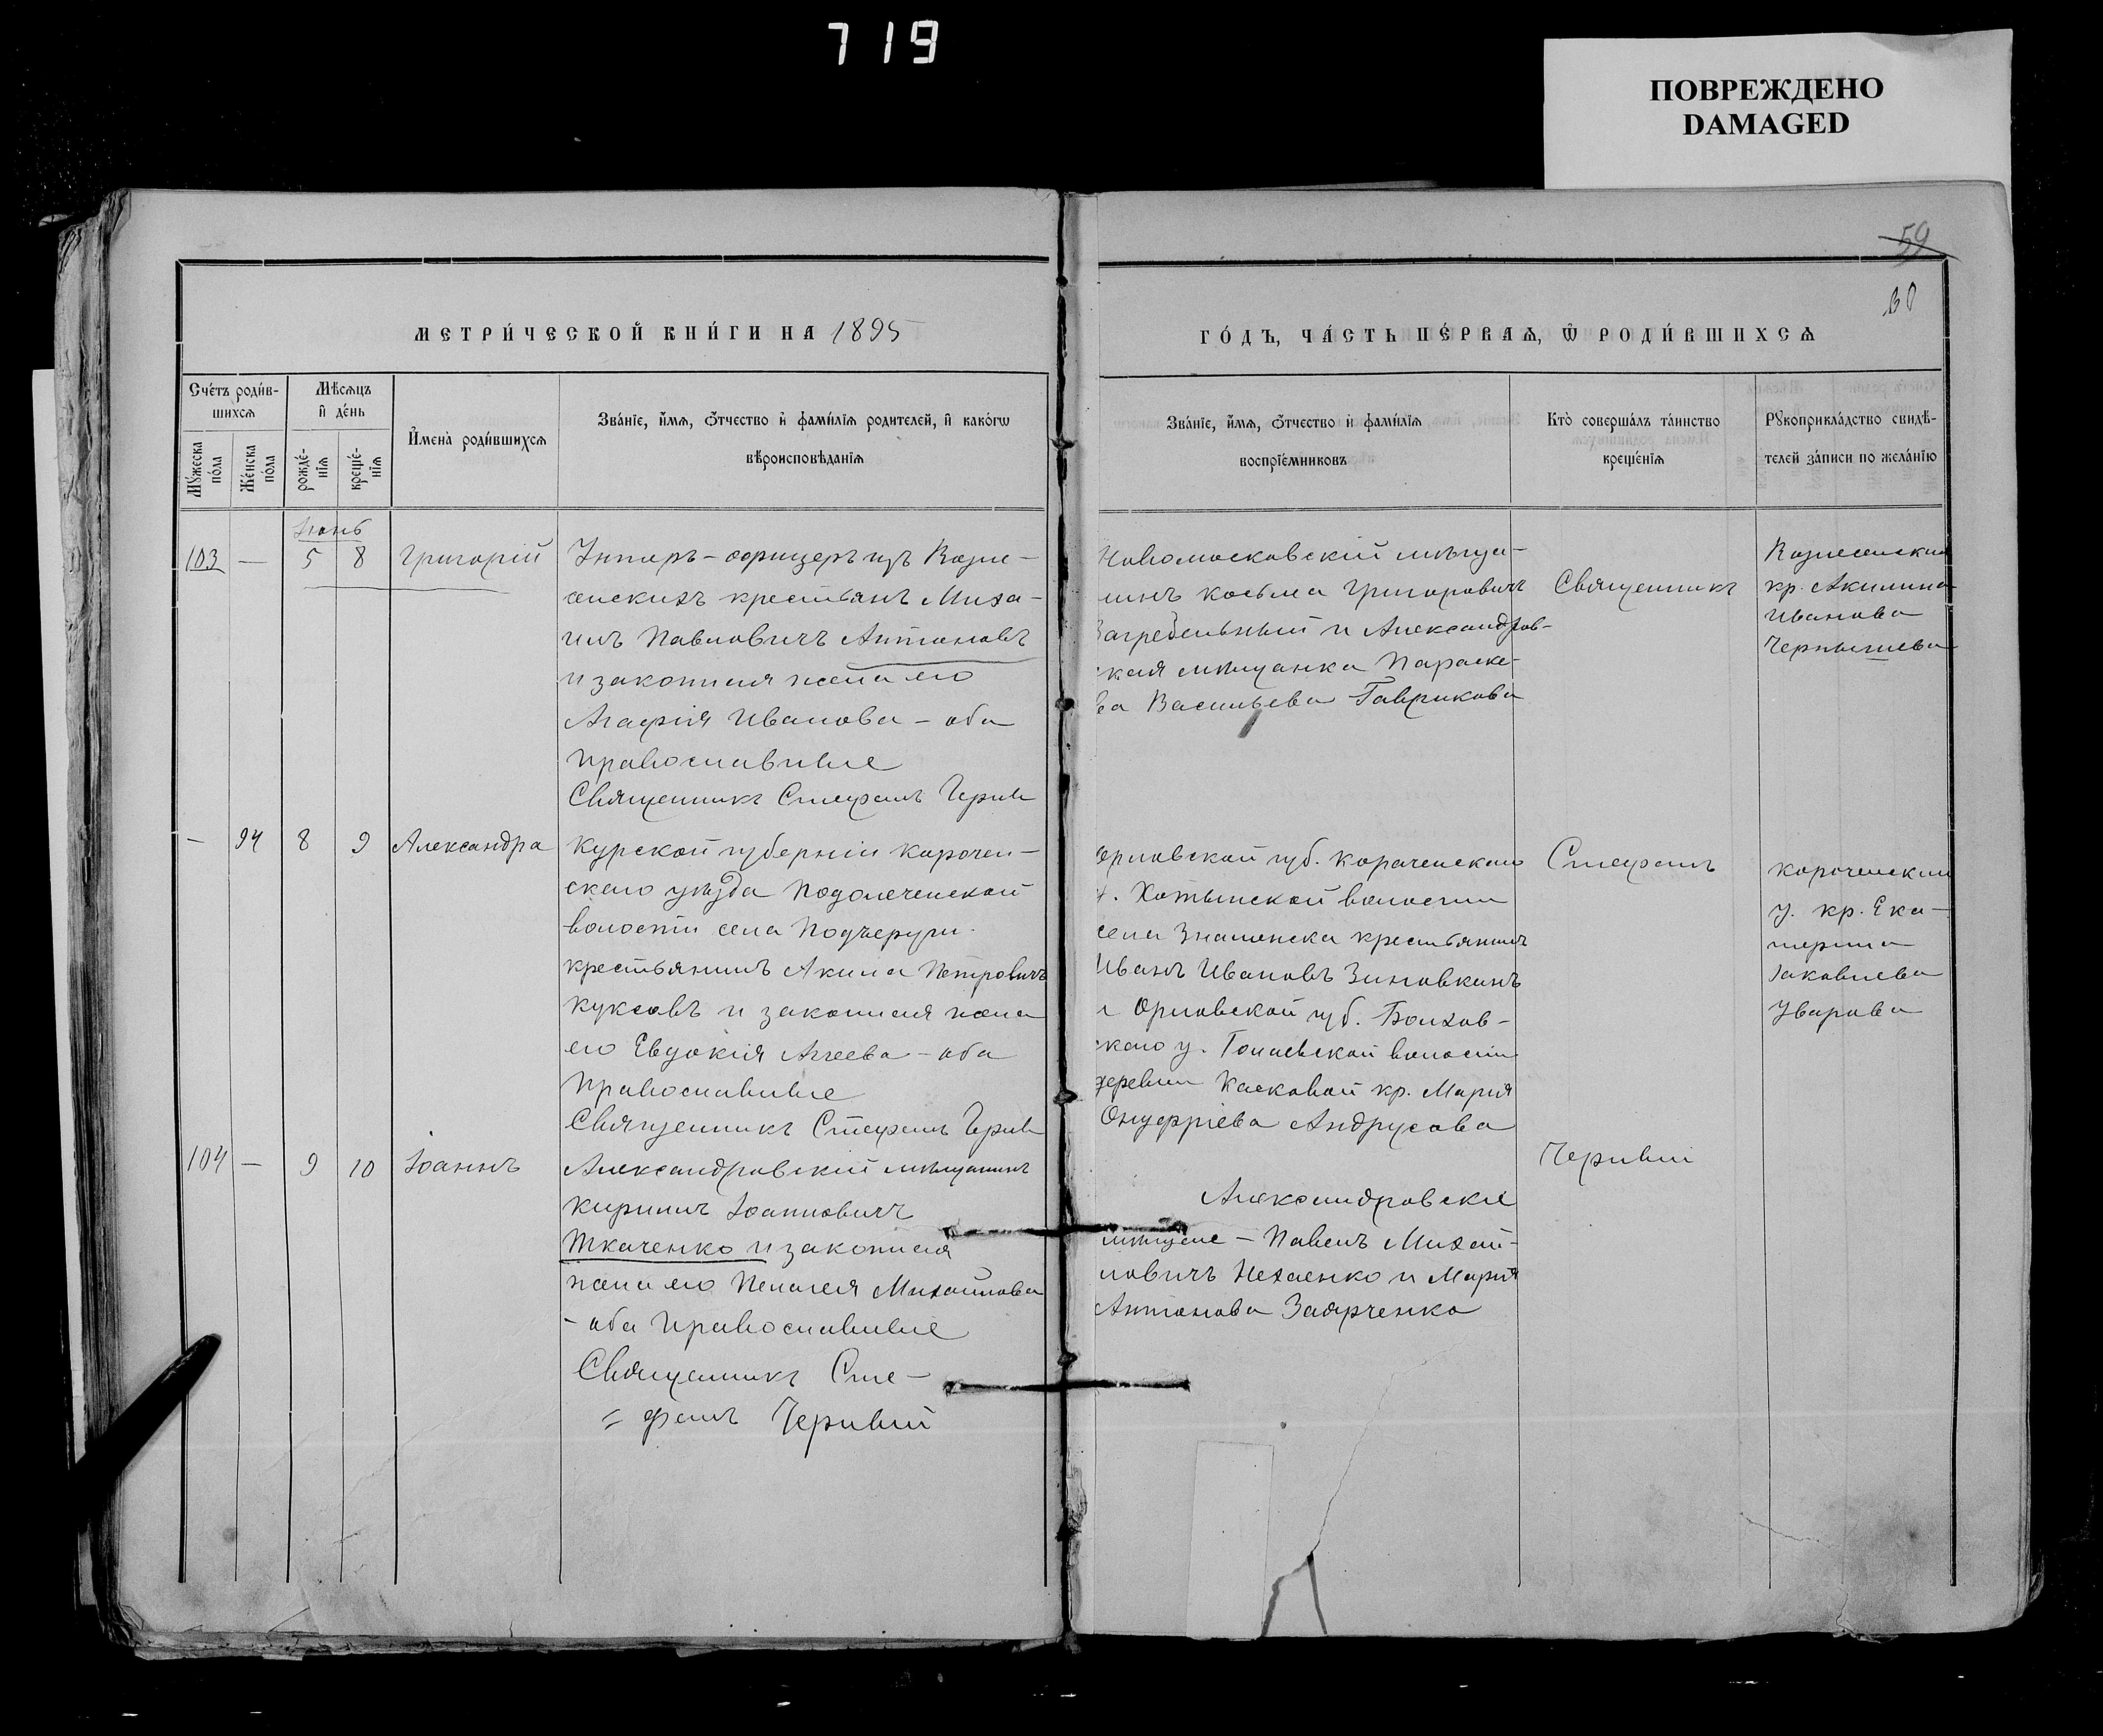 719
ПОВРЕЖДЕНО
DAMAGED
59
МЕТРИ́ЧЕСКОЙ КНИ́ГИ НА 1895
ГО́ДЪ, ЧА́СТЬ ПЕ́РВАѦ, Ѽ РОДИ́ВШИХСѦ
Сче́тъ роди́в-
шихсѧ
Мꙋ́жеска по́ла
Же́нска по́ла
Мѣ́сѧцъ
и҆ де́нь
рожде́-
нїѧ
креще́-
нїѧ
И҆мена̀ роди́вшихсѧ
Зва́нїе, и҆́мѧ, ѻ҆́тчество и҆ фами́лїѧ родителей, и҆ како́гѡ
вѣроисповѣ́данїѧ
Зва́нїе, и҆́мѧ, ѻ҆́тчество и҆ фами́лїѧ
воспрїе́мниковъ
Кто̀ соверша́лъ та́инство
креще́нїѧ
Рꙋкоприкла́дство свидѣ́-
телей за́писи по жела́нїю
Іюнь
103 — 5 8 Григорій
Унтеръ-офицеръ изъ Возне-
сенскихъ крестьянъ Миха-
илъ Павловичъ Антоновъ
и законная жена его
Агафія Иванова - оба
православные
Священникъ Стефанъ
Новомосковскій мѣща-
нинъ Косьма Григоровичъ
Загребельный и Александров-
ская мѣщанка Параске-
ва Васильева Гаврикова
Священникъ
Вознесенская
кр. Акилина
Иванова
Чернышева
— 94 8 9 Александра
Курской губерніи Корочен-
скаго уѣзда Подолеченской
волости села
крестьянинъ Акила Петровичъ
Куксовъ и законная жена
его Евдокія Агеева - оба
православные
Священникъ Стефанъ
Орловской губ. Карачевскаго
у. Хотынской волости
села Знаменска крестьянинъ
Иванъ Ивановъ Зиновкинъ
и Орловской губ. Болхов-
скаго у. волости
деревни Касковой кр. Марія
Онуфріева Андрусова
Стефанъ
Короченская
у. кр. Ека-
терина
Іаковлева
Уварова
104 — 9 10 Іоаннъ
Александровскій мѣщанинъ
Кириллъ Іоанновичъ
Ткаченко и законная
жена его Пелагея Михайлова
- оба православные
Священникъ Сте-
= фанъ
Александровскіе
мѣщане - Павелъ Михай-
ловичъ Нехаенко и Марія
Антонова